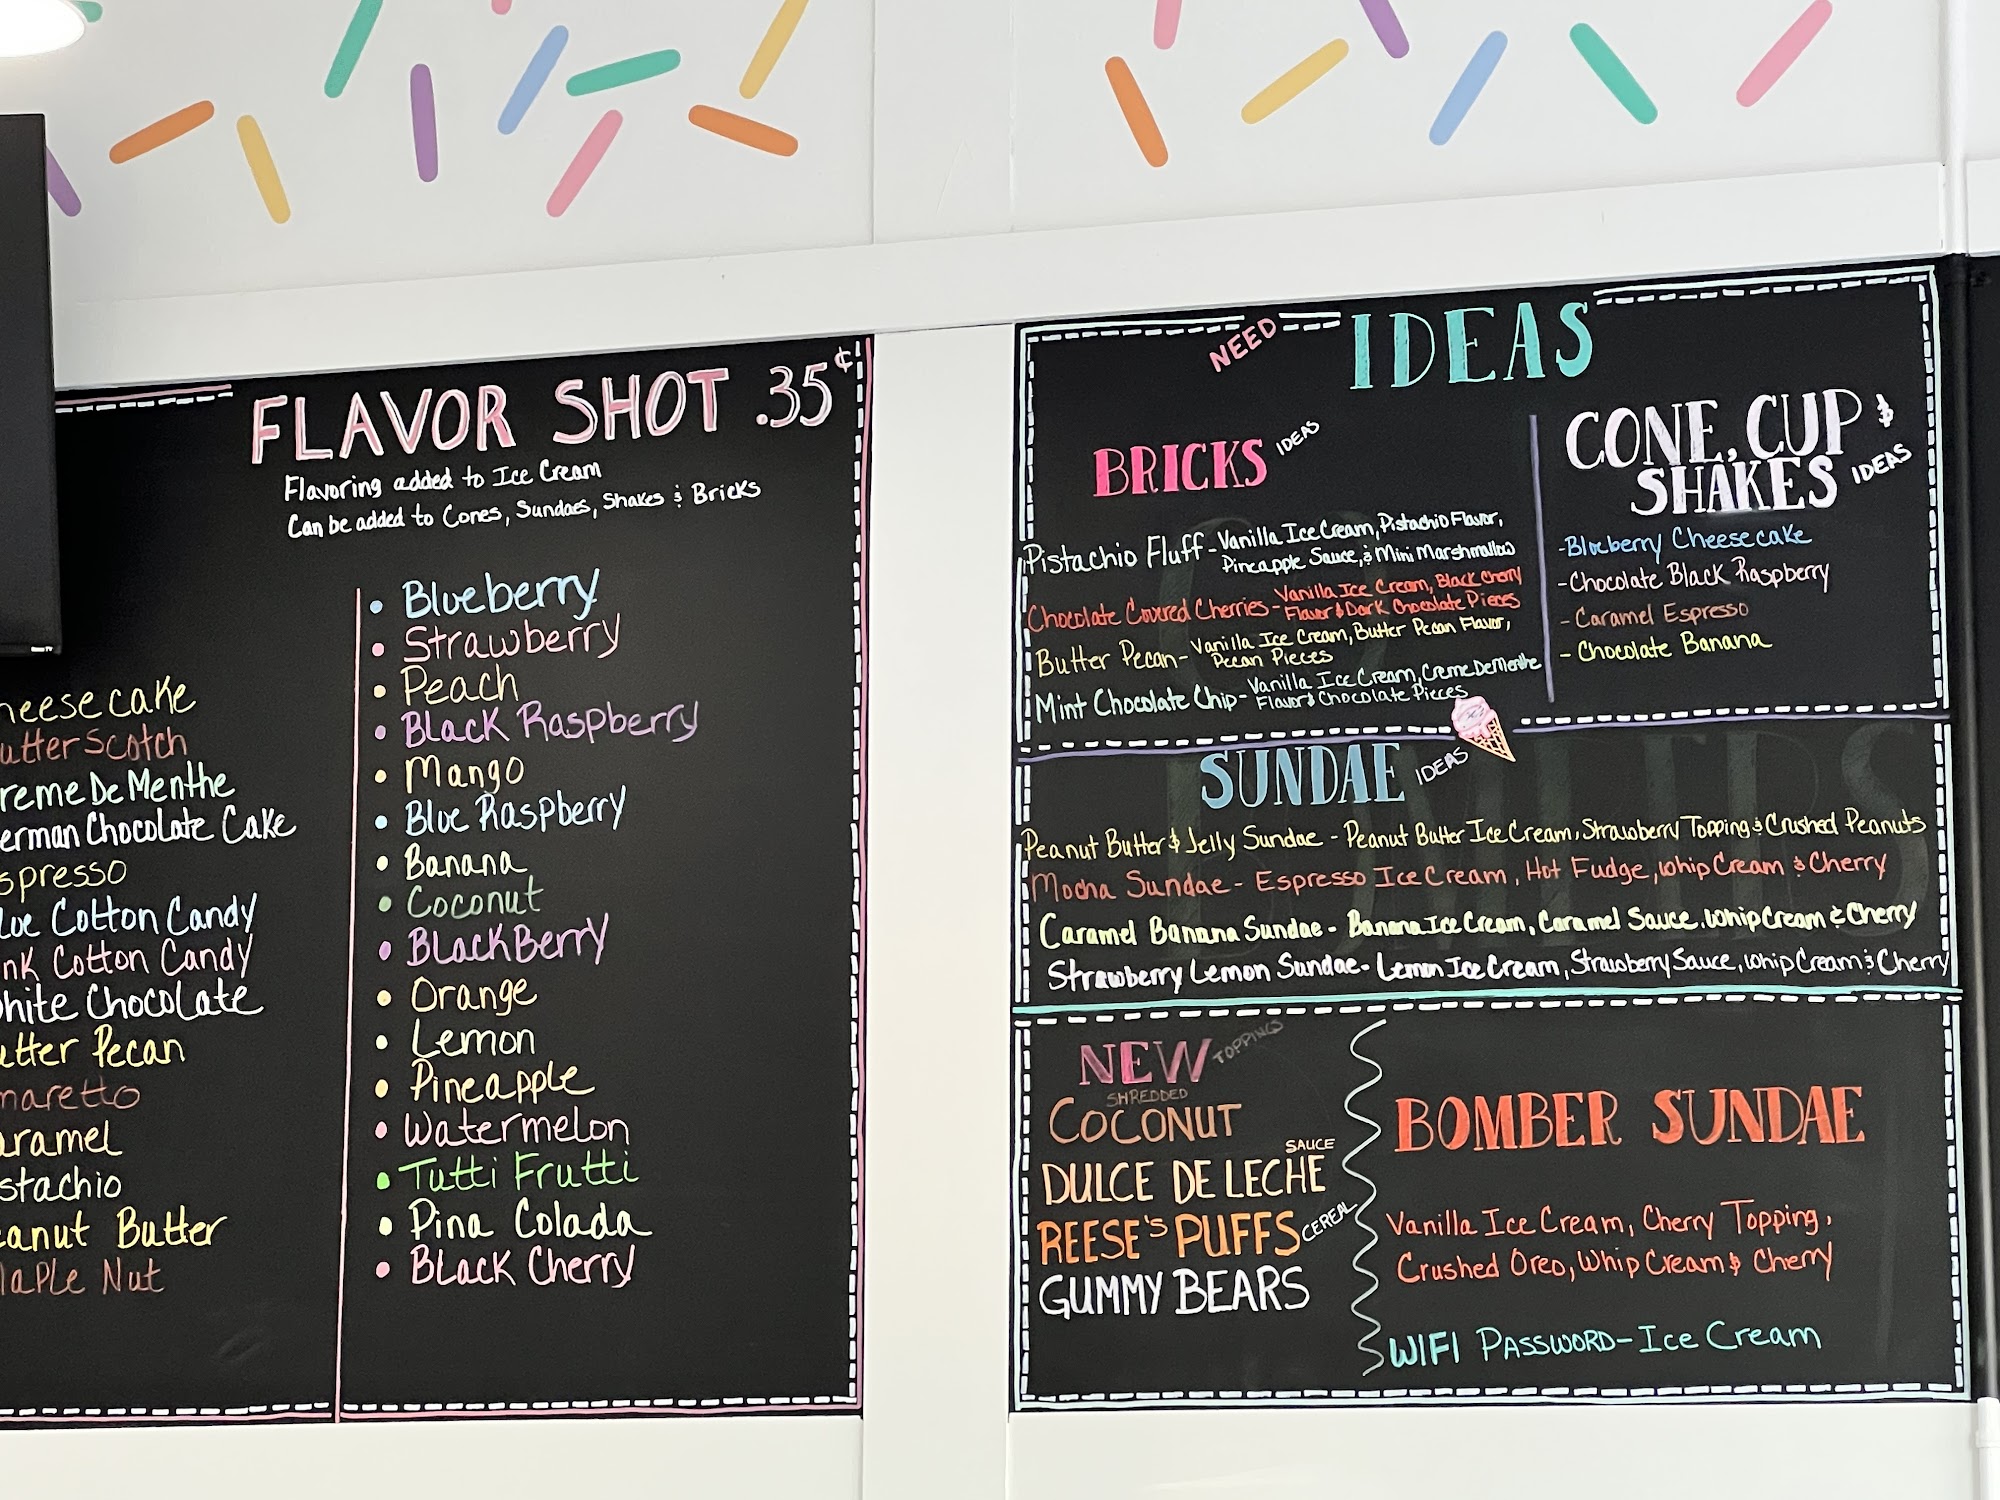 FLAVOR SHOT .35¢
Flavoring added to Ice Cream
Can be added to Cones, Sundaes, Shakes & Bricks
heesecake
utterScotch
remeDeMenthe
erman Chocolate Cake
spresso
lue Cotton Candy
nk Cotton Candy
hite Chocolate
utter Pecan
maretto
aramel
stachio
eanut Butter
aple Nut
• Blueberry
• Strawberry
• Peach
• Black Raspberry
• Mango
• Blue Raspberry
• Banana
• Coconut
• BlackBerry
• Orange
• Lemon
• Pineapple
• Watermelon
• Tutti Frutti
• Pina Colada
• Black Cherry
NEED IDEAS
BRICKS IDEAS
Pistachio Fluff - Vanilla Ice Cream, Pistachio Flavor,
Pineapple Sauce, & Mini Marshmallow
Chocolate Covered Cherries - Vanilla Ice Cream, Black Cherry
Flavor & Dark Chocolate Pieces
Butter Pecan - Vanilla Ice Cream, Butter Pecan Flavor,
Pecan Pieces
Mint Chocolate Chip - Vanilla Ice Cream, Creme DeMenthe
Flavor & Chocolate Pieces
CONE, CUP &
SHAKES IDEAS
- Blueberry Cheesecake
- Chocolate Black Raspberry
- Caramel Espresso
- Chocolate Banana
SUNDAE IDEAS
Peanut Butter & Jelly Sundae - Peanut Butter Ice Cream, Strawberry Topping & Crushed Peanuts
Mocha Sundae - Espresso Ice Cream, Hot Fudge, Whip Cream & Cherry
Caramel Banana Sundae - Banana Ice Cream, Caramel Sauce, Whip Cream & Cherry
Strawberry Lemon Sundae - Lemon Ice Cream, Strawberry Sauce, Whip Cream & Cherry
NEW TOPPINGS
SHREDDED
COCONUT
SAUCE
DULCE DE LECHE
REESE'S PUFFS CEREAL
GUMMY BEARS
BOMBER SUNDAE
Vanilla Ice Cream, Cherry Topping,
Crushed Oreo, Whip Cream & Cherry
WIFI PASSWORD - Ice Cream